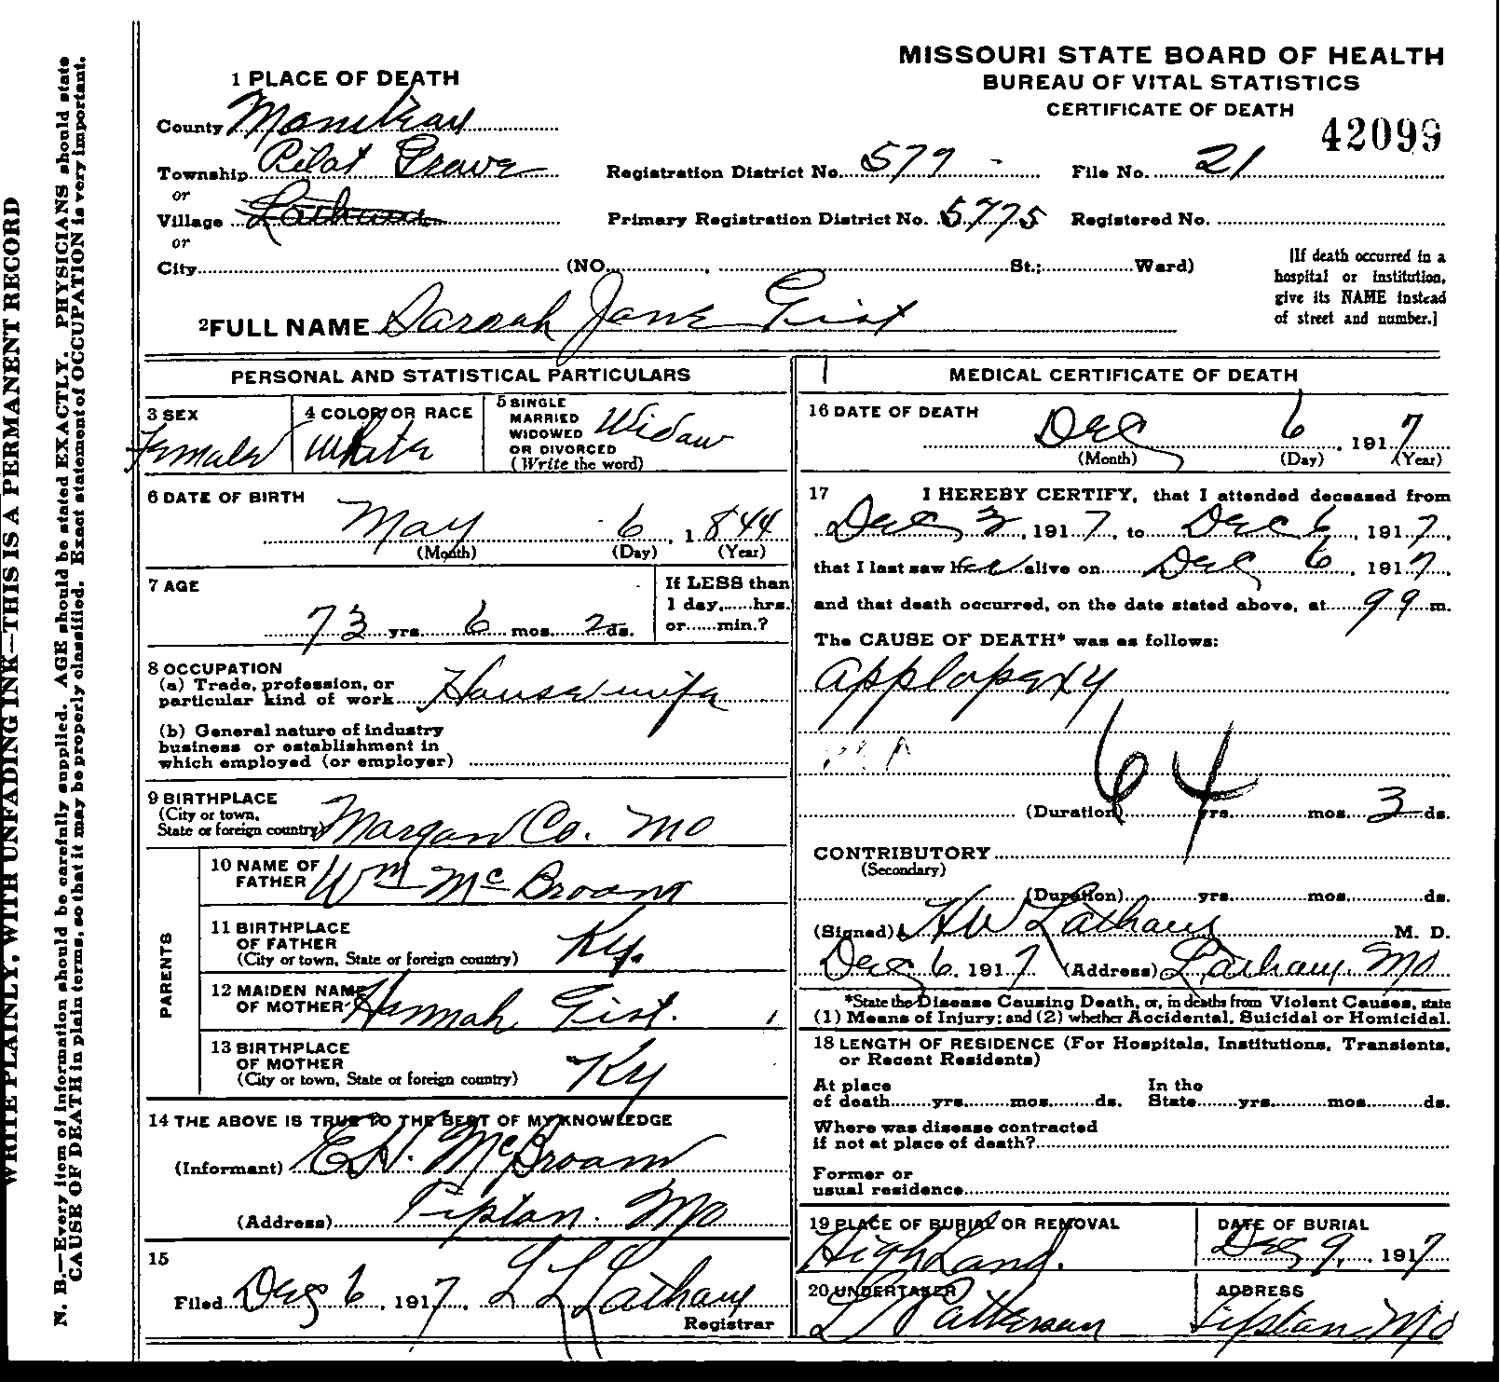 MISSOURI STATE BOARD OF HEALTH
BUREAU OF VITAL STATISTICS
CERTIFICATE OF DEATH
42099
1 PLACE OF DEATH
County Moniteau
Township Pilot Grove Registration District No. 579 - File No. 21
or
Village Latham Primary Registration District No. 5775 Registered No.
or
City (NO. , St.; Ward)
[If death occurred in a
hospital or institution,
give its NAME instead
of street and number.]
2 FULL NAME Sarah Jane Gist
PERSONAL AND STATISTICAL PARTICULARS
3 SEX
Female
4 COLOR OR RACE
White
5 SINGLE
MARRIED
WIDOWED
OR DIVORCED
(Write the word)
Widow
6 DATE OF BIRTH
May 6, 1844
(Month) (Day) (Year)
7 AGE
73 yrs. 6 mos. 2 ds.
If LESS than
1 day, hrs.
or min.?
8 OCCUPATION
(a) Trade, profession, or
particular kind of work Housewife
(b) General nature of industry
business or establishment in
which employed (or employer)
9 BIRTHPLACE
(City or town,
State or foreign country) Morgan Co. Mo
PARENTS
10 NAME OF
FATHER Wm McBroom
11 BIRTHPLACE
OF FATHER
(City or town, State or foreign country) Ky.
12 MAIDEN NAME
OF MOTHER Hannah Gist.
13 BIRTHPLACE
OF MOTHER
(City or town, State or foreign country) Ky
14 THE ABOVE IS TRUE TO THE BEST OF MY KNOWLEDGE
(Informant) E.H. McBroom
(Address) Tipton. Mo
15
Filed Dec 6, 1917, L L Latham
Registrar
1
MEDICAL CERTIFICATE OF DEATH
16 DATE OF DEATH
Dec 6, 1917
(Month) (Day) (Year)
17 I HEREBY CERTIFY, that I attended deceased from
Dec 3, 1917, to Dec 6, 1917,
that I last saw her alive on Dec 6, 1917,
and that death occurred, on the date stated above, at 99 m.
The CAUSE OF DEATH* was as follows:
Applopexy
64
(Duration) yrs. mos. 3 ds.
CONTRIBUTORY
(Secondary)
(Duration) yrs. mos. ds.
(Signed) H W Latham M. D.
Dec 6, 1917 (Address) Latham, Mo
*State the Disease Causing Death, or, in deaths from Violent Causes, state
(1) Means of Injury; and (2) whether Accidental, Suicidal or Homicidal.
18 LENGTH OF RESIDENCE (For Hospitals, Institutions, Transients,
or Recent Residents)
At place In the
of death yrs. mos. ds. State yrs. mos. ds.
Where was disease contracted
if not at place of death?
Former or
usual residence
19 PLACE OF BURIAL OR REMOVAL
High Land.
DATE OF BURIAL
Dec 9, 1917
20 UNDERTAKER
L Patterson
ADDRESS
Tipton, Mo
WRITE PLAINLY, WITH UNFADING INK—THIS IS A PERMANENT RECORD
N. B.—Every item of information should be carefully supplied. AGE should be stated EXACTLY. PHYSICIANS should state
CAUSE OF DEATH in plain terms, so that it may be properly classified. Exact statement of OCCUPATION is very important.